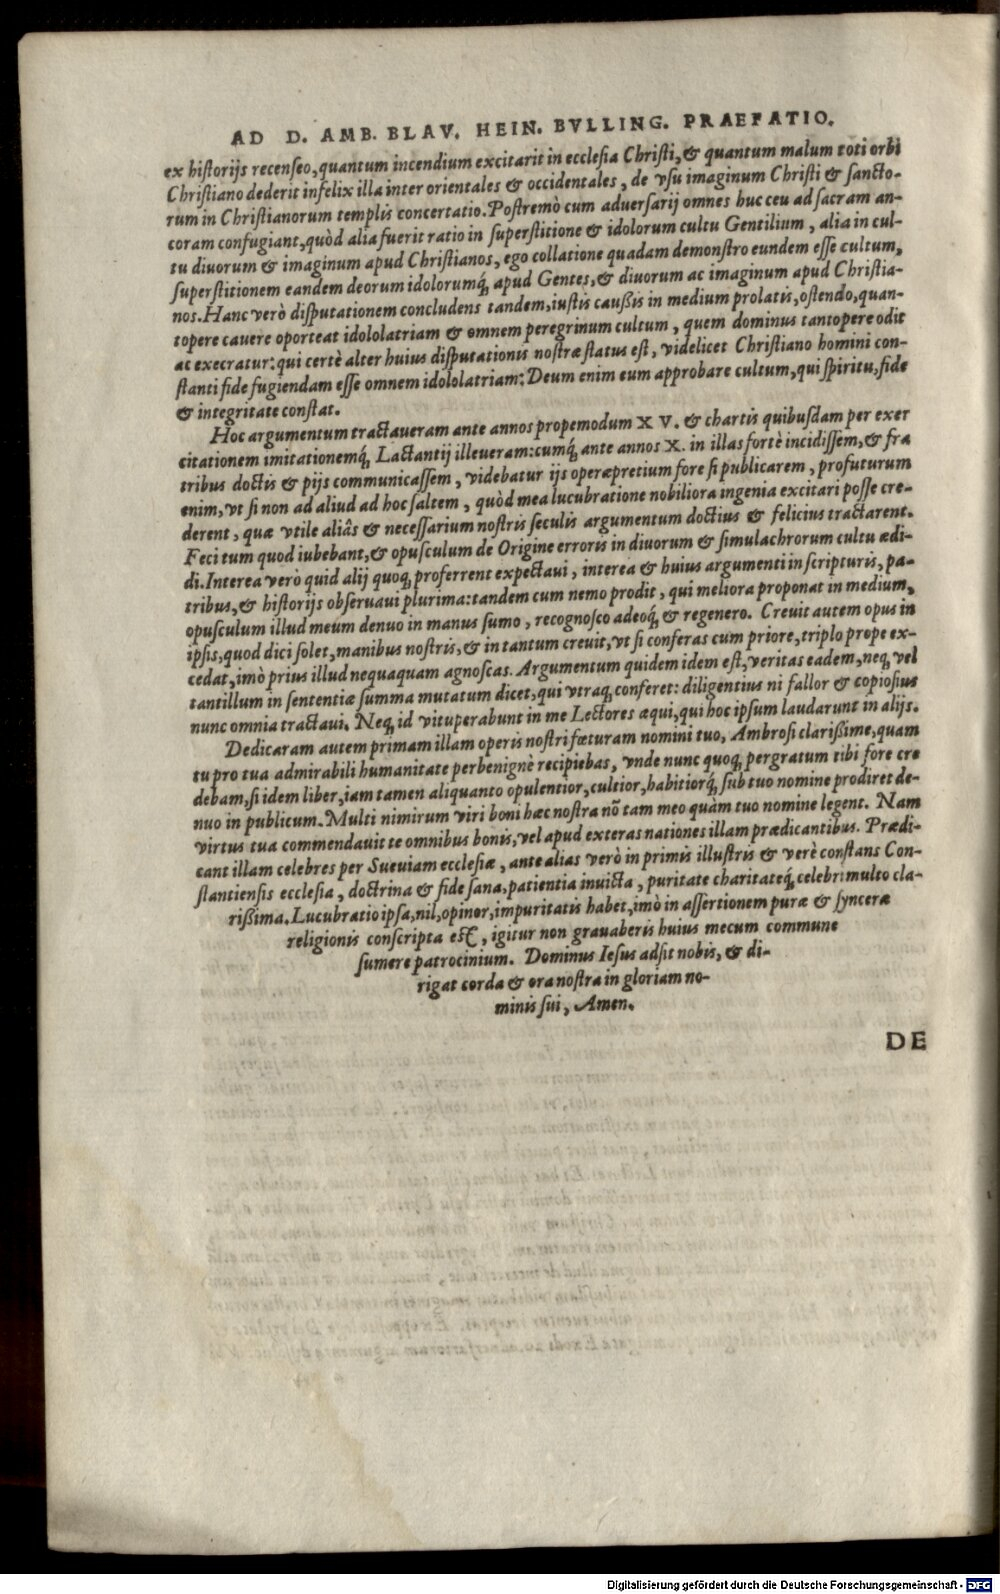 AD D. AMB. BLAV. HEIN. BVLLING. PRAEFATIO.
ex historijs recenseo, quantum incendium excitarit in ecclesia Christi, & quantum malum toti orbi
Christiano dederit infelix illa inter orientales & occidentales, de vsu imaginum Christi & sancto-
rum in Christianorum templis concertatio. Postremò cum aduersarij omnes huc ceu ad sacram an-
coram confugiant, quòd alia fuerit ratio in superstitione & idolorum cultu Gentilium, alia in cul-
tu diuorum & imaginum apud Christianos, ego collatione quadam demonstro eundem esse cultum,
superstitionem eandem deorum idolorumq́; apud Gentes, & diuorum ac imaginum apud Christia-
nos. Hanc verò disputationem concludens tandem, iustis caußis in medium prolatis, ostendo, quan-
topere cauere oporteat idololatriam & omnem peregrinum cultum, quem dominus tantopere odit
ac execratur: qui certè alter huius disputationis nostræ status est, videlicet Christiano homini con-
stanti fide fugiendam esse omnem idololatriam: Deum enim eum approbare cultum, qui spiritu, fide
& integritate constat.
Hoc argumentum tractaueram ante annos propemodum X V. & chartis quibusdam per exer
citationem imitationemq́; Lactantij illeueram: cumq́; ante annos X. in illas fortè incidissem, & fra
tribus doctis & pijs communicassem, videbatur ijs operæpretium fore si publicarem, profuturum
enim, vt si non ad aliud ad hoc saltem, quòd mea lucubratione nobiliora ingenia excitari posse cre-
derent, quæ vtile aliâs & necessarium nostris seculis argumentum doctius & felicius tractarent.
Feci tum quod iubebant, & opusculum de Origine erroris in diuorum & simulachrorum cultu ædi-
di. Interea verò quid alij quoq; proferrent expectaui, interea & huius argumenti in scripturis, pa-
tribus, & historijs obseruaui plurima: tandem cum nemo prodit, qui meliora proponat in medium,
opusculum illud meum denuo in manus sumo, recognosco adeoq́; & regenero. Creuit autem opus in
ipsis, quod dici solet, manibus nostris, & in tantum creuit, vt si conferas cum priore, triplo prope ex-
cedat, imò prius illud nequaquam agnoscas. Argumentum quidem idem est, veritas eadem, neq; vel
tantillum in sententiæ summa mutatum dicet, qui vtraq; conferet: diligentius ni fallor & copiosius
nunc omnia tractaui. Neq; id vituperabunt in me Lectores æqui, qui hoc ipsum laudarunt in alijs.
Dedicaram autem primam illam operis nostri fœturam nomini tuo, Ambrosi clarißime, quam
tu pro tua admirabili humanitate perbenignè recipiebas, vnde nunc quoq; pergratum tibi fore cre
debam, si idem liber, iam tamen aliquanto opulentior, cultior, habitiorq́; sub tuo nomine prodiret de-
nuo in publicum. Multi nimirum viri boni hæc nostra nõ tam meo quàm tuo nomine legent. Nam
virtus tua commendauit te omnibus bonis, vel apud exteras nationes illam prædicantibus. Prædi-
cant illam celebres per Sueuiam ecclesiæ, ante alias verò in primis illustris & verè constans Con-
stantiensis ecclesia, doctrina & fide sana, patientia inuicta, puritate charitateq́; celebri multo cla-
rißima. Lucubratio ipsa, nil, opinor, impuritatis habet, imò in assertionem puræ & synceræ
religionis conscripta est, igitur non grauaberis huius mecum commune
sumere patrocinium. Dominus Iesus adsit nobis, & di-
rigat corda & ora nostra in gloriam no-
minis sui, Amen.
DE
Digitalisierung gefördert durch die Deutsche Forschungsgemeinschaft - DFG